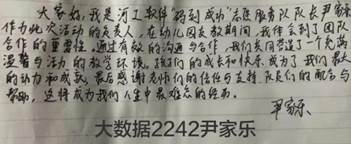 大家好，我是河工软件“码到成功”志愿服务队队长尹家乐
作为此次活动的负责人，在幼儿园支教期间，我体会到了团队
合作的重要性，通过有效的沟通与合作，我们共同营造了一个充满
温馨与活力的教学环境。孩们的成长和快乐，成为了我们最大
的动力和成就，最后感谢老师们的信任与支持，队员们的配合与
帮助，这将成为我们人生中最难忘的经历。
尹家乐
大数据2242尹家乐